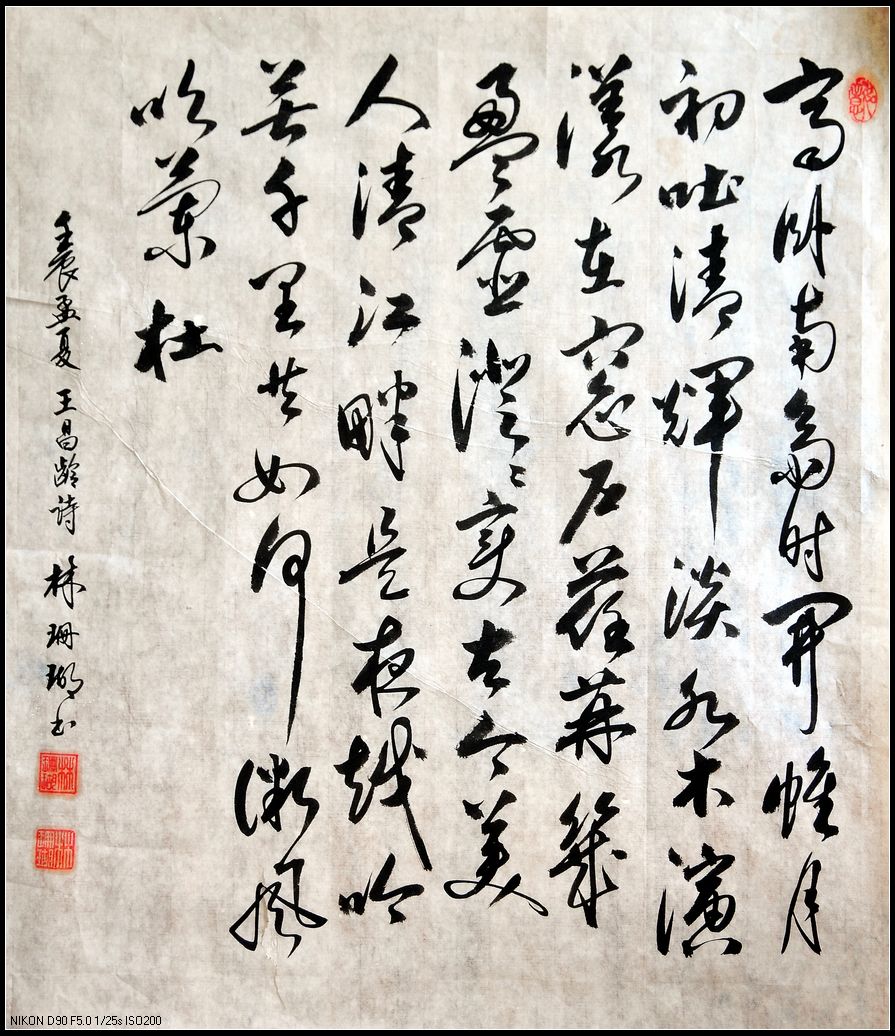 高卧南齋时開帷月
初吐清輝淡水木演
漾在窓户荏苒幾
盈虚澄澄变古今美
人清江畔是夜越吟
苦千里共如何微風
吹蘭杜
壬辰孟夏 王昌齡詩 林珊瑚书
NIKON D90 F5.0 1/25s ISO200